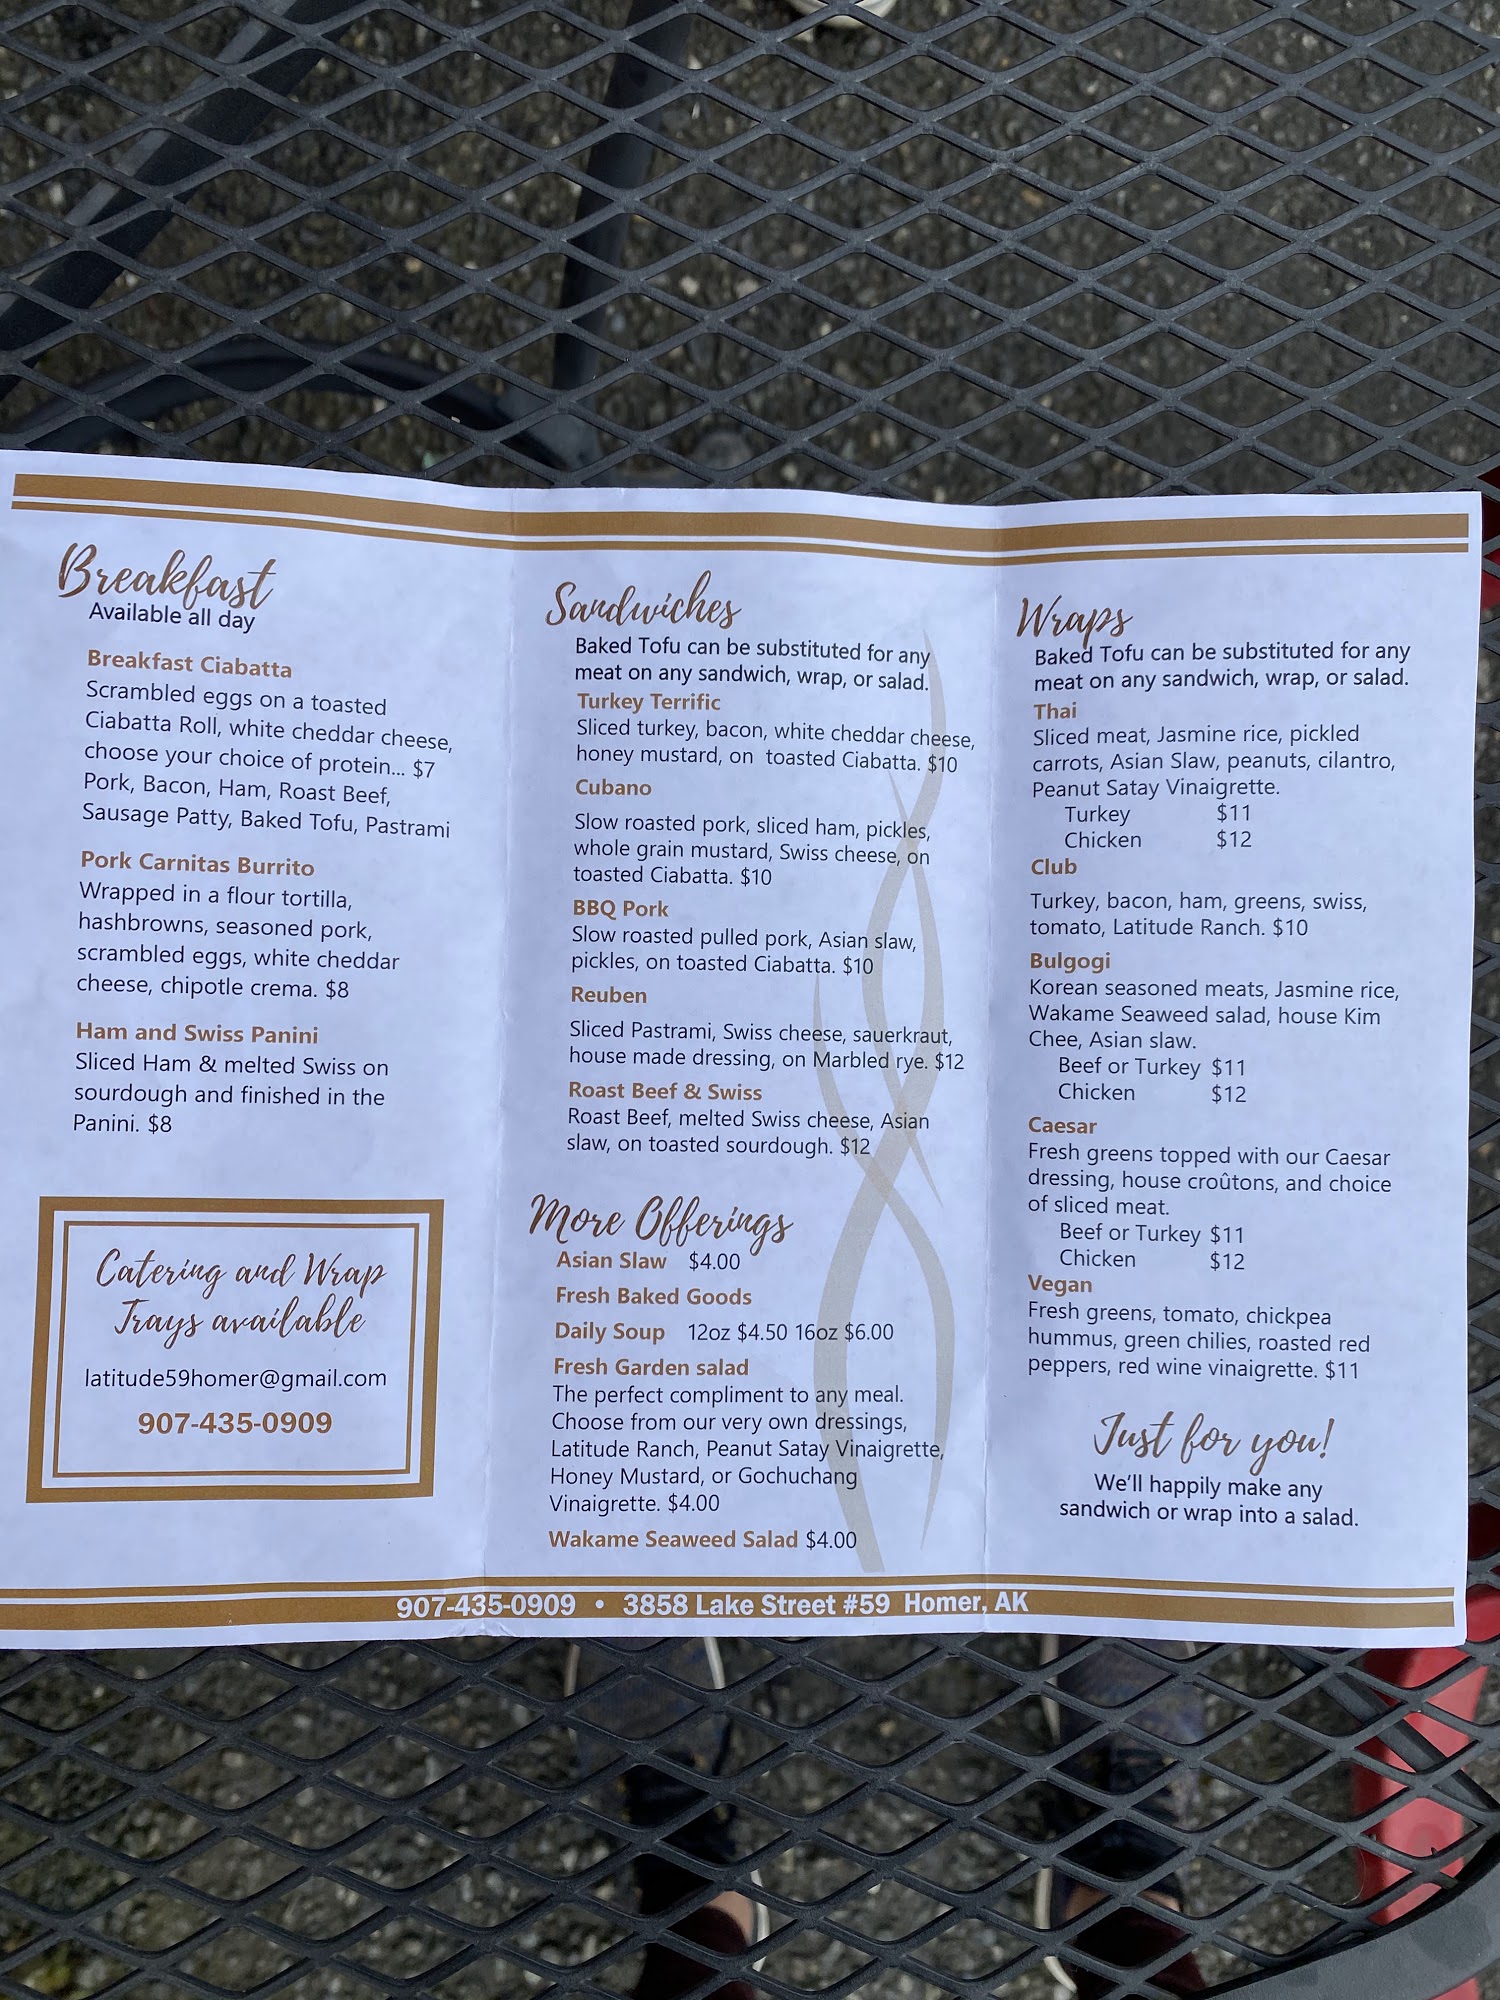 Breakfast
Available all day
Breakfast Ciabatta
Scrambled eggs on a toasted
Ciabatta Roll, white cheddar cheese,
choose your choice of protein... $7
Pork, Bacon, Ham, Roast Beef,
Sausage Patty, Baked Tofu, Pastrami
Pork Carnitas Burrito
Wrapped in a flour tortilla,
hashbrowns, seasoned pork,
scrambled eggs, white cheddar
cheese, chipotle crema. $8
Ham and Swiss Panini
Sliced Ham & melted Swiss on
sourdough and finished in the
Panini. $8
Catering and Wrap
Trays available
latitude59homer@gmail.com
907-435-0909
Sandwiches
Baked Tofu can be substituted for any
meat on any sandwich, wrap, or salad.
Turkey Terrific
Sliced turkey, bacon, white cheddar cheese,
honey mustard, on toasted Ciabatta. $10
Cubano
Slow roasted pork, sliced ham, pickles,
whole grain mustard, Swiss cheese, on
toasted Ciabatta. $10
BBQ Pork
Slow roasted pulled pork, Asian slaw,
pickles, on toasted Ciabatta. $10
Reuben
Sliced Pastrami, Swiss cheese, sauerkraut,
house made dressing, on Marbled rye. $12
Roast Beef & Swiss
Roast Beef, melted Swiss cheese, Asian
slaw, on toasted sourdough. $12
More Offerings
Asian Slaw $4.00
Fresh Baked Goods
Daily Soup 12oz $4.50 16oz $6.00
Fresh Garden salad
The perfect compliment to any meal.
Choose from our very own dressings,
Latitude Ranch, Peanut Satay Vinaigrette,
Honey Mustard, or Gochuchang
Vinaigrette. $4.00
Wakame Seaweed Salad $4.00
Wraps
Baked Tofu can be substituted for any
meat on any sandwich, wrap, or salad.
Thai
Sliced meat, Jasmine rice, pickled
carrots, Asian Slaw, peanuts, cilantro,
Peanut Satay Vinaigrette.
Turkey $11
Chicken $12
Club
Turkey, bacon, ham, greens, swiss,
tomato, Latitude Ranch. $10
Bulgogi
Korean seasoned meats, Jasmine rice,
Wakame Seaweed salad, house Kim
Chee, Asian slaw.
Beef or Turkey $11
Chicken $12
Caesar
Fresh greens topped with our Caesar
dressing, house croûtons, and choice
of sliced meat.
Beef or Turkey $11
Chicken $12
Vegan
Fresh greens, tomato, chickpea
hummus, green chilies, roasted red
peppers, red wine vinaigrette. $11
Just for you!
We'll happily make any
sandwich or wrap into a salad.
907-435-0909 • 3858 Lake Street #59 Homer, AK